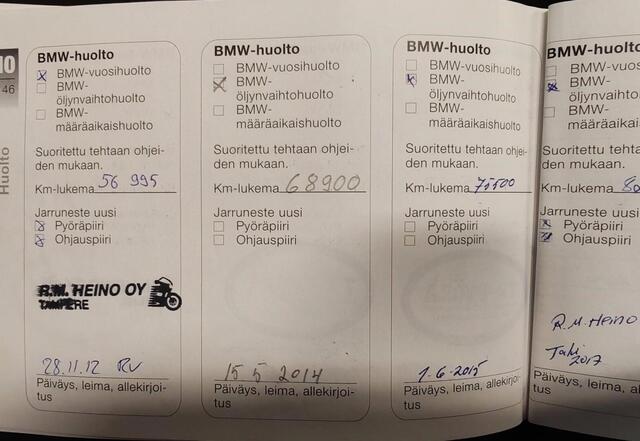 10
46
Huolto
BMW-huolto
BMW-vuosihuolto
BMW-
öljynvaihtohuolto
BMW-
määräaikaishuolto
Suoritettu tehtaan ohjei-
den mukaan.
Km-lukema 56 995
Jarruneste uusi
Pyöräpiiri
Ohjauspiiri
R.M. HEINO OY
TAMPERE
28.11.12 RV
Päiväys, leima, allekirjoi-
tus
BMW-huolto
BMW-vuosihuolto
BMW-
öljynvaihtohuolto
BMW-
määräaikaishuolto
Suoritettu tehtaan ohjei-
den mukaan.
Km-lukema 68900
Jarruneste uusi
Pyöräpiiri
Ohjauspiiri
15 5 2014
Päiväys, leima, allekirjoi-
tus
BMW-huolto
BMW-vuosihuolto
BMW-
öljynvaihtohuolto
BMW-
määräaikaishuolto
Suoritettu tehtaan ohjei-
den mukaan.
Km-lukema 75500
Jarruneste uusi
Pyöräpiiri
Ohjauspiiri
1.6.2015
Päiväys, leima, allekirjoi-
tus
BMW-huolto
BMW-vuosi
BMW-
öljynvaihto
BMW-
määräaikai
Suoritettu tehta
den mukaan.
Km-lukema 80
Jarruneste uusi
Pyöräpiiri
Ohjauspiiri
R.M. Heino
2017
Päiväys, leima, a
tus